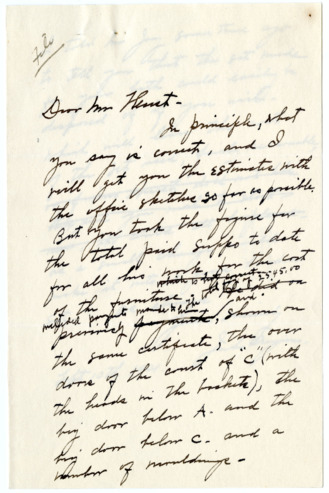 File
Dear Mr Hearst -
In principle, what
you say is correct, and I
will get you the estimates with
the office sketches so far as possible.
But you took the figure for
the total paid Suppo to date
for all his work, for the cost
of the furniture
previously shown on
the same certificate, the over
doors of the court of "C" (with
the heads in the baskets), the
big door below A. and the
big door below C. and a
number of mouldings -